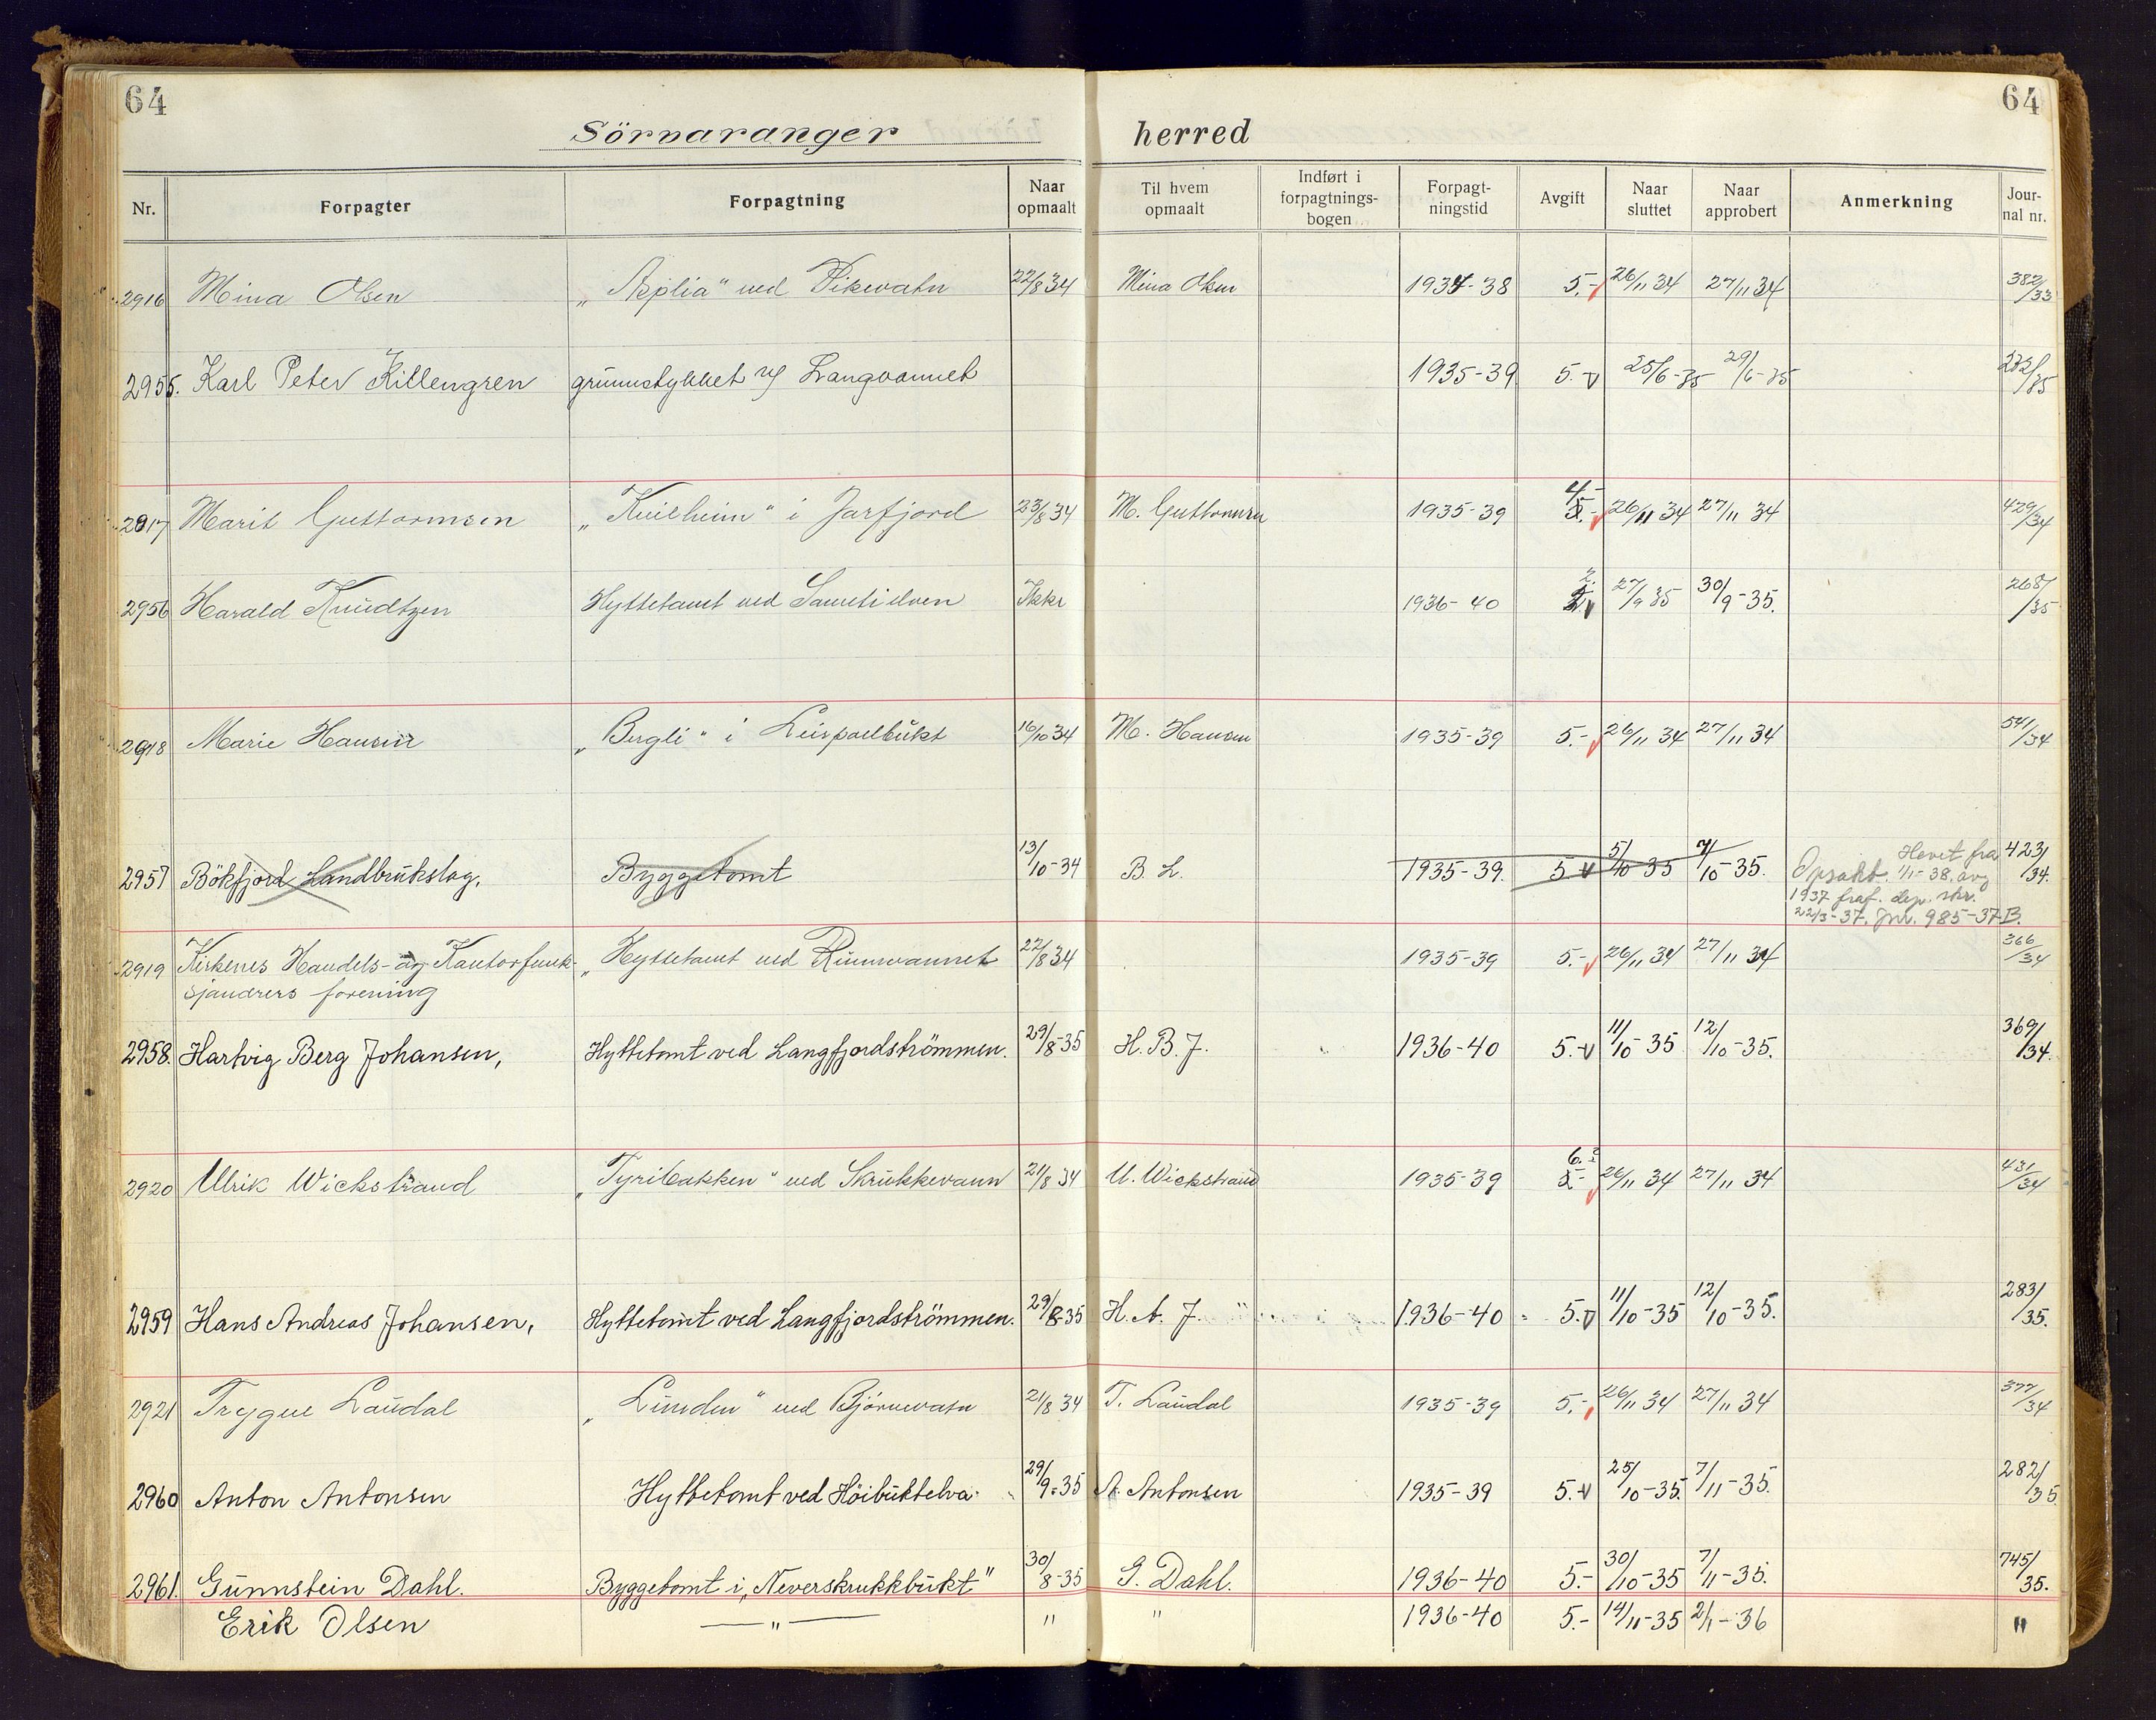 64
64
Sörvaranger herred
Nr. Forpagter Forpagtning Naar opmaalt Til hvem opmaalt Indført i forpagtnings-bogen Forpagt-ningstid Avgift Naar sluttet Naar approbert Anmerkning Jour-nal nr.
2916 Mina Olsen ved 22/8 34 Mina Olsen 1934-38 5.- 26/11 34 27/11 34 382/33
2955. Karl Peter Killengren grunnstykket v/ Langvannet 1935-39 5.- 25/6-35 29/6-35 /35
2917 Marit Guttormsen i Jarfjord 23/8 34 M. Guttormsen 1935-39 4.- 5.- 26/11 34 27/11 34 429/34
2956 Harald Knudtzen Hyttetomt ved 1936-40 2. 27/9 35 30/9-35. 268/35
2918 Marie Hansen „Bergli" i 16/10 34 M. Hansen 1935-39 5.- 26/11 34 27/11 34 541/34
2957 Bökfjord Landbrukslag. Byggetomt 13/10-34 B. L. 1935-39. 5 5/10-35 7/10-35. Hevet fra 423/34.
Opsakt. 1/1-38. avg
1937 fraf. dep. skr.
22/3-37. Jnr. 985-37 B.
2919 Kirkenes Handels- og Kontorfunk- „Hyttetomt ved 22/8 34 1935-39 5.- 26/11 34 27/11 34 366/34
sjonærers forening
2958. Hartvig Berg Johansen, Hyttetomt ved Langfjordströmmen. 29/8-35 H. B. J. 1936-40 5.- 11/10-35 12/10-35. 369/34.
2920 Ulrik Wickstrand „Tyribakken" ved Skrukkevann 21/8 34 U. Wickstrand 1935-39 6.- 26/11 34 27/11 34 431/34
2959 Hans Andreas Johansen, Hyttetomt ved Langfjordströmmen. 29/8-35 H. A. J. 1936-40 5. 11/10-35 12/10-35. 283/35.
2921 Trygve Laudal ved Bjørnevatn 21/8 34 T. Laudal 1935-39 5.- 26/11 34 27/11 34 377/34
2960 Anton Antonsen Hyttetomt ved Höibuktelva. 29/9-35 A. Antonsen 1935-39 5.- 25/10-35. 7/11-35. 282/35
2961. Gunnstein Dahl. Byggetomt i „Neverskrukkbukt" 30/8-35 G. Dahl. 1936-40 5.- 30/10-35 7/11-35. 745/35.
Erik Olsen —„— " " 1936-40 5.- 14/11-35 2/1-36 "